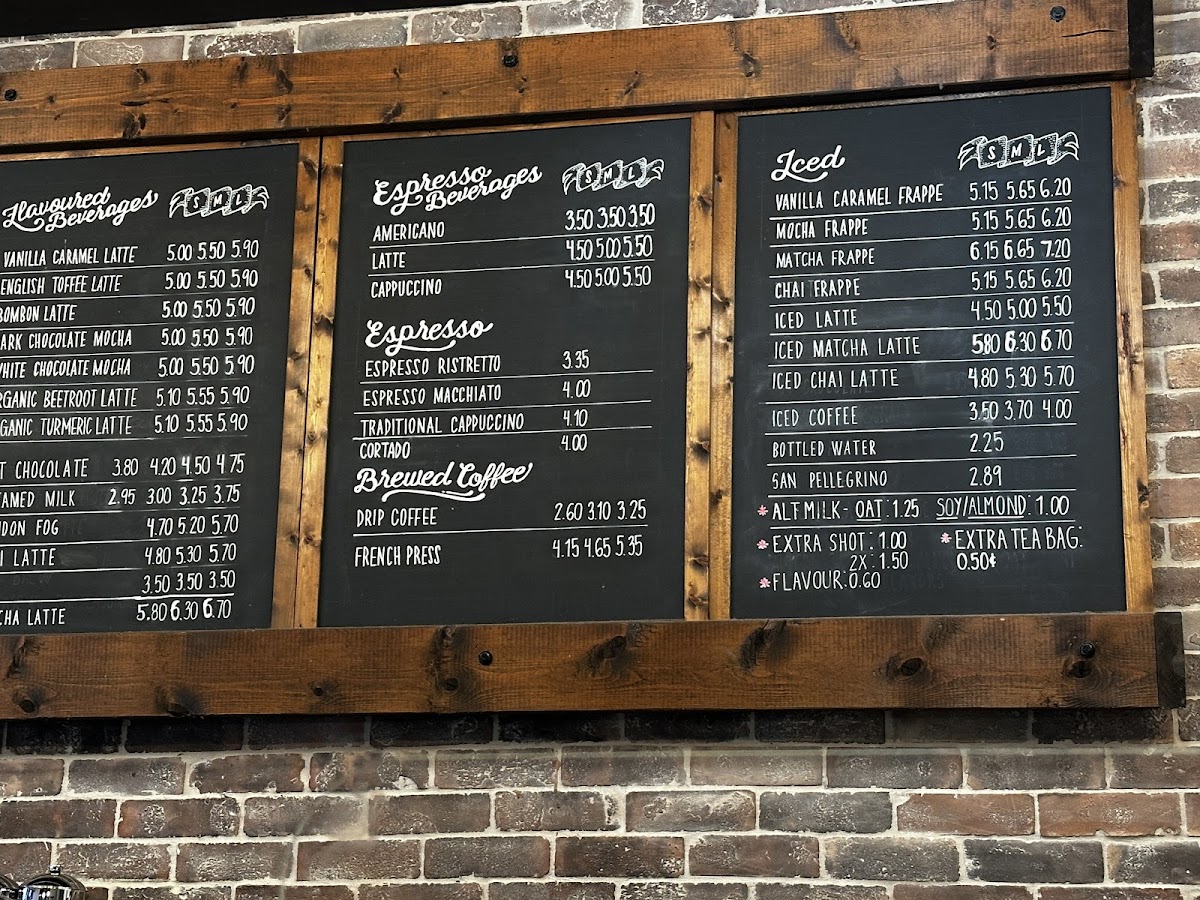 Flavoured
Beverages
S M L
VANILLA CARAMEL LATTE 5.00 5.50 5.90
ENGLISH TOFFEE LATTE 5.00 5.50 5.90
BOMBON LATTE 5.00 5.50 5.90
ARK CHOCOLATE MOCHA 5.00 5.50 5.90
HITE CHOCOLATE MOCHA 5.00 5.50 5.90
RGANIC BEETROOT LATTE 5.10 5.55 5.90
GANIC TURMERIC LATTE 5.10 5.55 5.90
T CHOCOLATE 3.80 4.20 4.50 4.75
AMED MILK 2.95 3.00 3.25 3.75
DON FOG 4.70 5.20 5.70
I LATTE 4.80 5.30 5.70
3.50 3.50 3.50
CHA LATTE 5.80 6.30 6.70
Espresso
Beverages
S M L
AMERICANO 3.50 3.50 3.50
LATTE 4.50 5.00 5.50
CAPPUCCINO 4.50 5.00 5.50
Espresso
ESPRESSO RISTRETTO 3.35
ESPRESSO MACCHIATO 4.00
TRADITIONAL CAPPUCCINO 4.10
CORTADO 4.00
Brewed Coffee
DRIP COFFEE 2.60 3.10 3.25
FRENCH PRESS 4.15 4.65 5.35
Iced S M L
VANILLA CARAMEL FRAPPE 5.15 5.65 6.20
MOCHA FRAPPE 5.15 5.65 6.20
MATCHA FRAPPE 6.15 6.65 7.20
CHAI FRAPPE 5.15 5.65 6.20
ICED LATTE 4.50 5.00 5.50
ICED MATCHA LATTE 5.80 6.30 6.70
ICED CHAI LATTE 4.80 5.30 5.70
ICED COFFEE 3.50 3.70 4.00
BOTTLED WATER 2.25
SAN PELLEGRINO 2.89
* ALT MILK - OAT: 1.25 SOY/ALMOND: 1.00
* EXTRA SHOT: 1.00 * EXTRA TEA BAG:
2X: 1.50 0.50¢
* FLAVOUR: 0.60